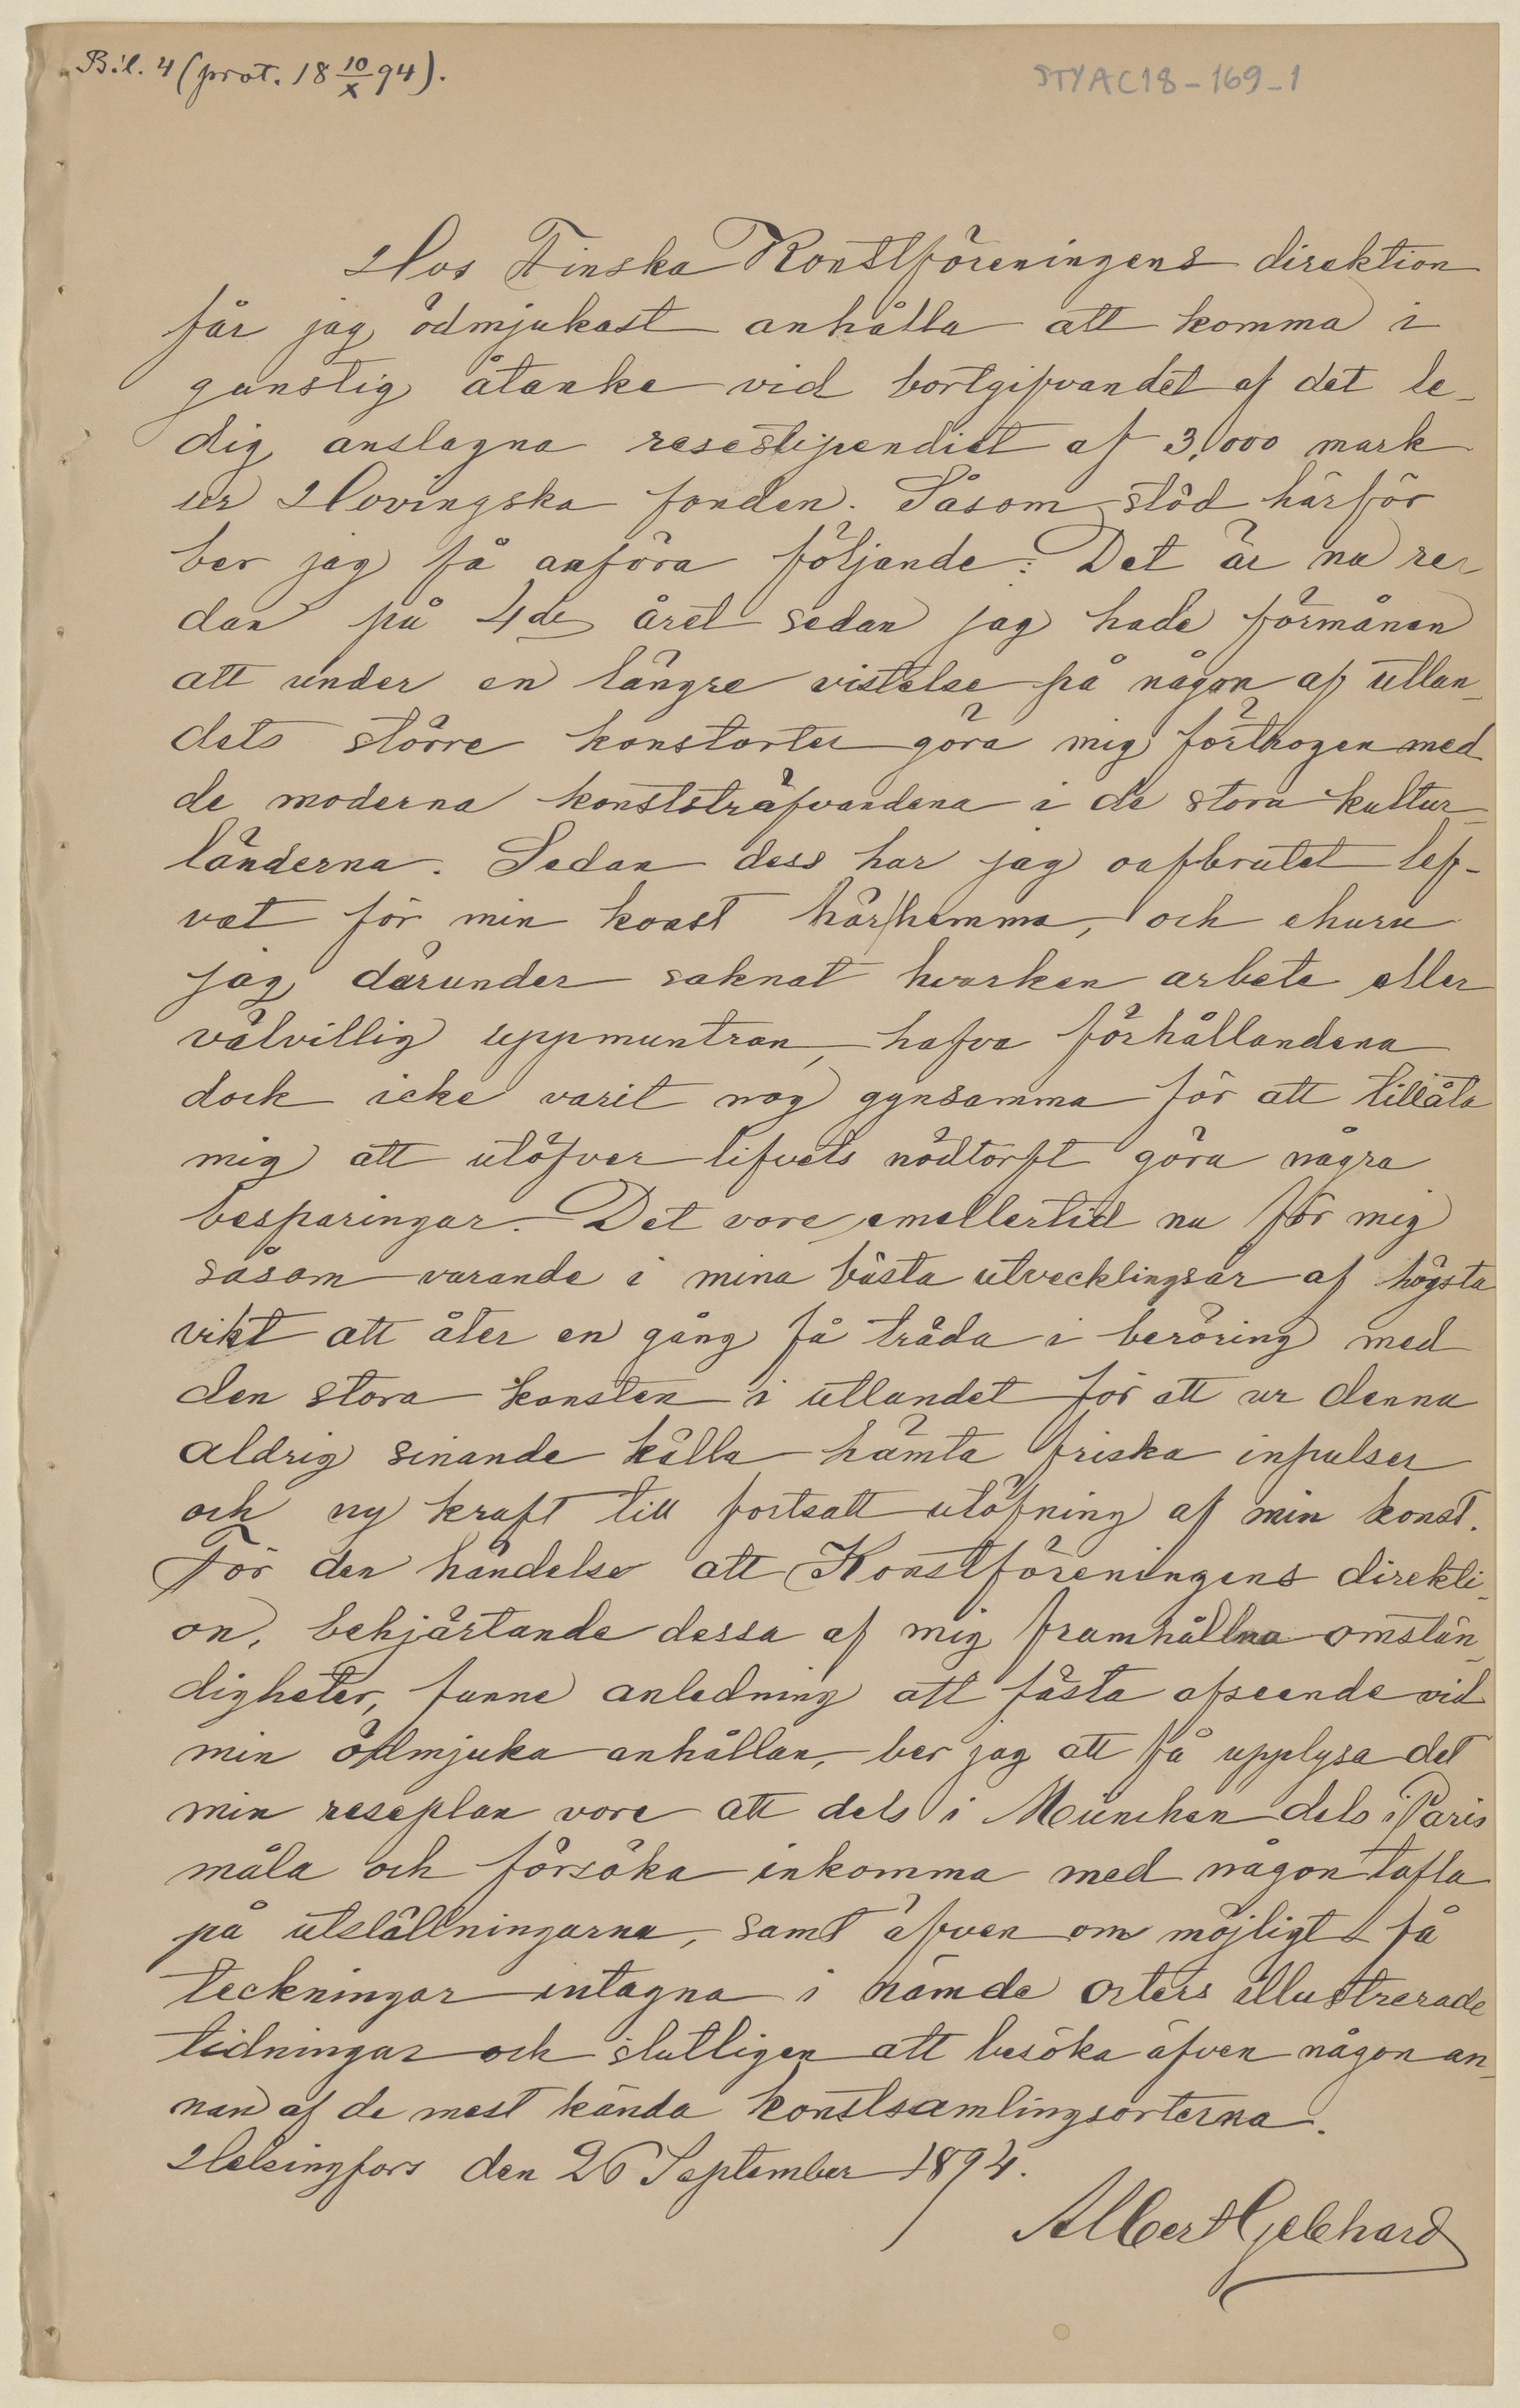 Bil. 4 (prot. 18 10/X 94).
STYAC18-169-1
Hos Finska Konstföreningens direktion
får jag ödmjukast anhålla att komma i
gunstig åtanke vid bortgifvandet af det le-
dig anslagna resestipendiet af 3,000 mark
ur Hovingska fonden. Såsom stöd härför
ber jag få anföra följande: Det är nu re-
dan på 4de året sedan jag hade förmånen
att under en längre vistelse på någon af utlan-
dets större konstorter göra mig förtrogen med
de moderna konststräfvandena i de stora kultur-
länderna. Sedan dess har jag oafbrutet lef-
vat för min konst här hemma, och ehuru
jag därunder saknat hvarken arbete eller
välvillig uppmuntran, hafva förhållandena
dock icke varit nog gynsamma för att tillåta
mig att utöfver lifvets nödtorft göra några
besparingar. Det vore emellertid nu för mig
såsom varande i mina bästa utvecklingsår af högsta
vikt att åter en gång få träda i beröring med
den stora konsten i utlandet för att ur denna
aldrig sinande källa hämta friska inpulser
och ny kraft till fortsatt utöfning af min konst.
För den händelse att Konstföreningens direkti-
on, behjärtande dessa af mig framhållna omstän-
digheter, funne anledning att fästa afseende vid
min ödmjuka anhållan, ber jag att få upplysa det
min reseplan vore att dels i München dels i Paris
måla och försöka inkomma med någon tafla
på utställningarna, samt äfven om möjligt få
teckningar intagna i nämde orters illustrerade
tidningar och slutligen att besöka äfven någon an-
nan af de mest kända konstsamlingsorterna.
Helsingfors den 26 September 1894.
Albert Gebhard